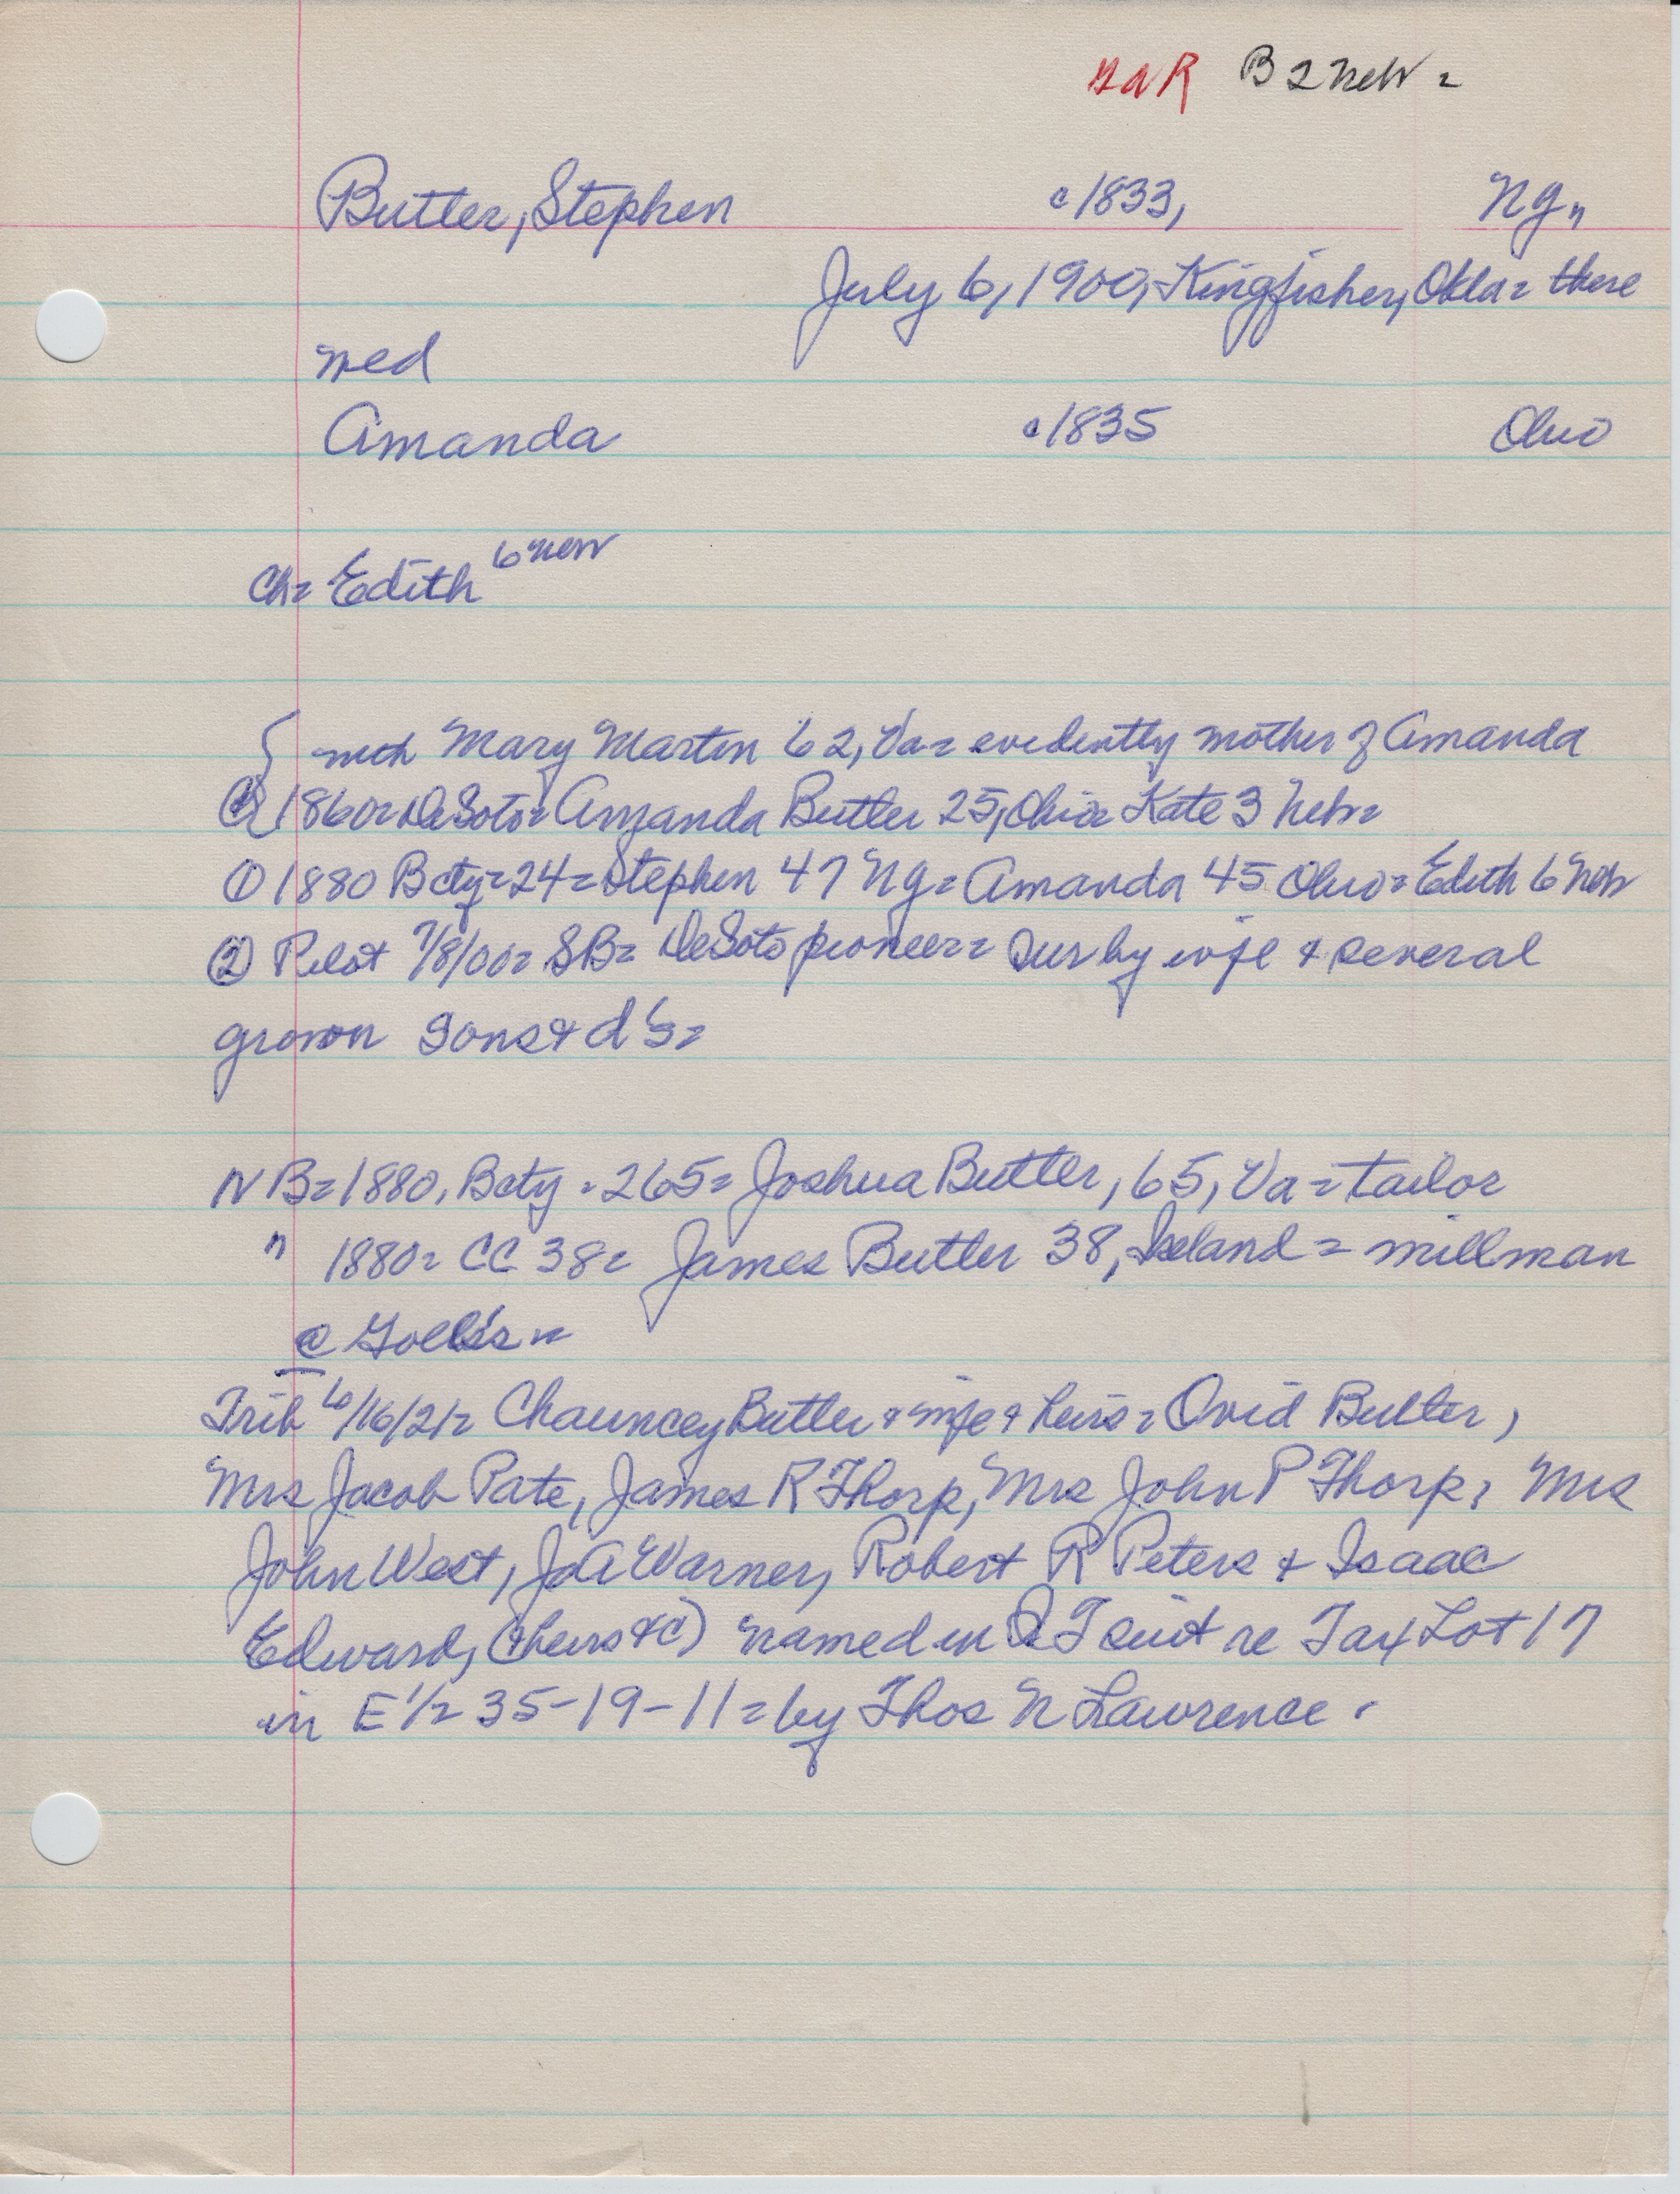 GAR B 2 Neb =
Butler, Stephen c1833, NY =
July 6, 1900, Kingfisher, Okla = there
med
Amanda c1835 Ohio
Ch = Edith 6 Neb
with Mary Martin 62, Va = evidently mother of Amanda
1860 = DeSoto = Amanda Butler 25, Ohio = Kate 3 Neb =
① 1880 Bcty = 24 = Stephen 47 NY = Amanda 45 Ohio = Edith 6 Neb
② Pilot 7/8/00 = SB = DeSoto pioneer = Sur by wife & several
grown sons & d's =
NB = 1880, Bcty = 265 = Joshua Butler, 65, Va = tailor
" 1880 = CC 38 = James Butler 38, Ireland = millman
@ Goll's =
Trib 6/16/21 = Chauncey Butler & wife & heirs = Ovid Butler,
Mrs Jacob Pate, James R Thorp, Mrs John P Thorp, Mrs
John West, J A Warner, Robert R Peters & Isaac
Edwards, (heirs &c) named in Q T suit re Tax Lot 17
in E 1/2 35-19-11 = by Thos N Lawrence.